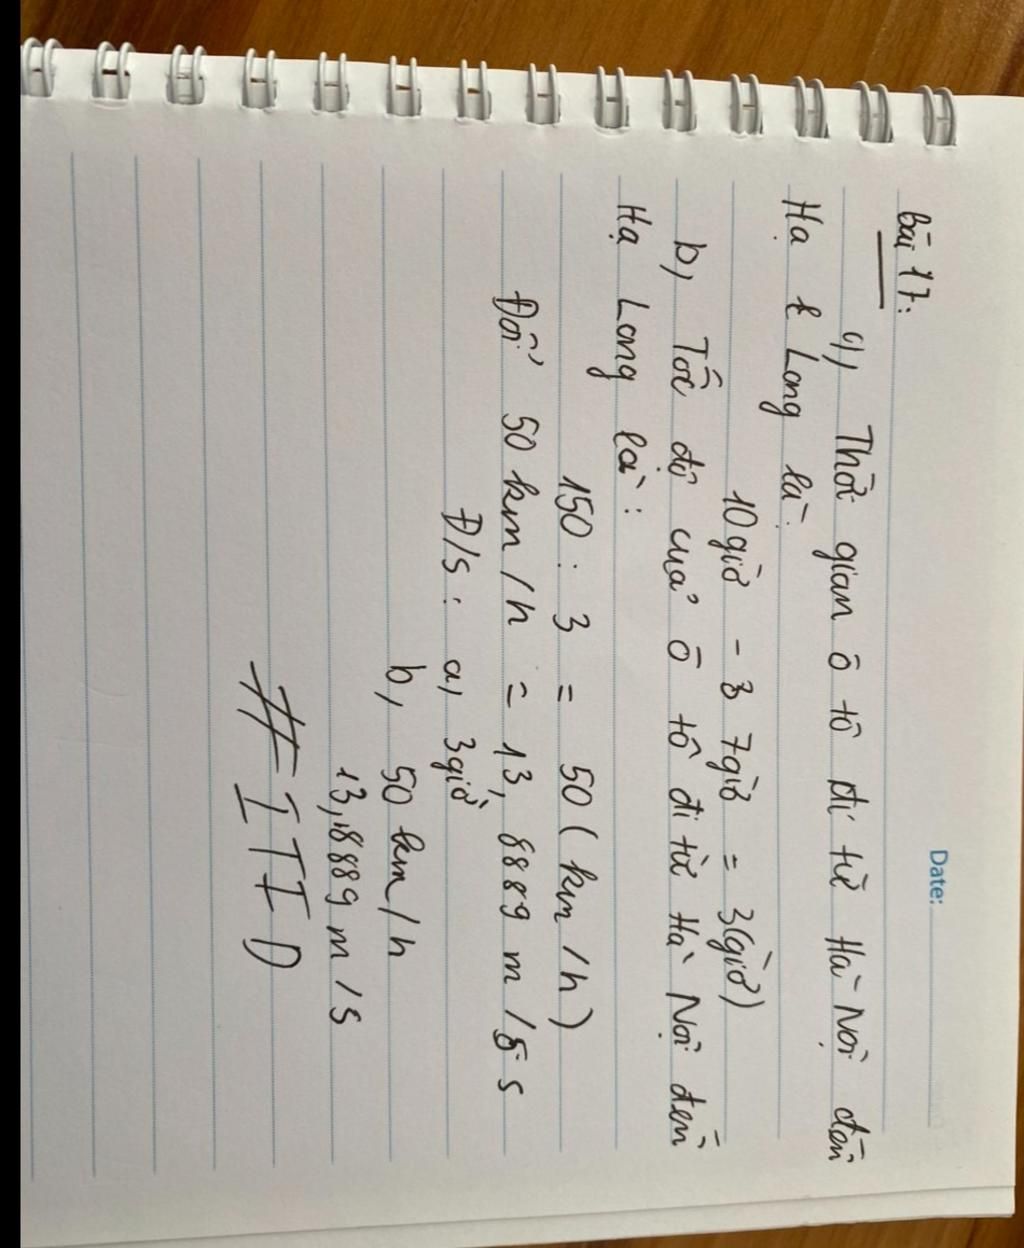 Date:
Bài 17:
a, Thời gian ô tô đi từ Hà Nội đến
Hạ Long là:
10giờ - 7giờ = 3(giờ)
b, Tốc độ của ô tô đi từ Hà Nội đến
Hạ Long là:
150 : 3 = 50 (km/h)
Đổi 50 km/h = 13,8889 m/s
Đ/s: a, 3giờ
b, 50 km/h
13,8889 m/s
#ITID